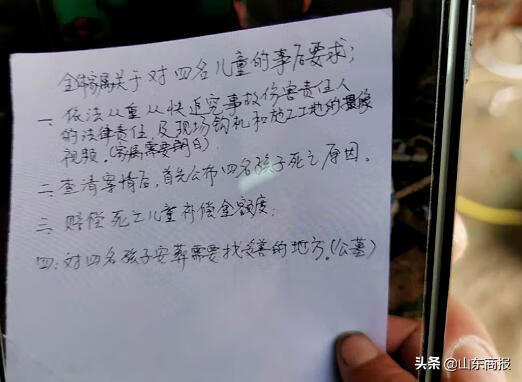 全体家属关于对四名儿童的事后要求；
一、依法从重从快追究事故伤害责任人
的法律责任，及现场钩机和施工工地的摄像
视频。（家属需要明白）
二、查清案情后，首先公布四名孩子死亡原因。
三、赔偿死亡儿童补偿金额度。
四：对四名孩子安葬需要找妥善的地方。（公墓）
头条 @山东商报